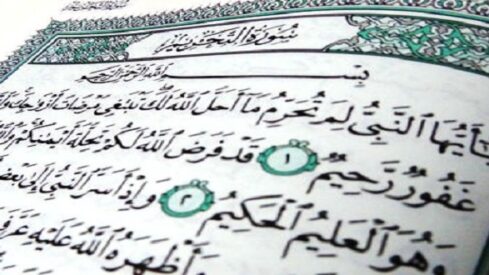 سُورَةُ التَّحْرِيمِ
بِسْمِ اللَّهِ الرَّحْمَٰنِ الرَّحِيمِ
يَٰٓأَيُّهَا ٱلنَّبِىُّ لِمَ تُحَرِّمُ مَآ أَحَلَّ ٱللَّهُ لَكَ تَبْتَغِى مَرْضَاتَ أَزْوَٰجِكَ وَٱللَّهُ
غَفُورٌ رَّحِيمٌ ١ قَدْ فَرَضَ ٱللَّهُ لَكُمْ تَحِلَّةَ أَيْمَٰنِكُمْ
وَهُوَ ٱلْعَلِيمُ ٱلْحَكِيمُ ٢ وَإِذْ أَسَرَّ ٱلنَّبِىُّ إِلَىٰ بَعْضِ
وَأَظْهَرَهُ ٱللَّهُ عَلَيْهِ عَرَّفَ